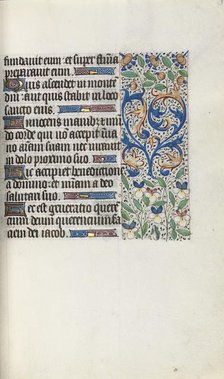 fundauit eum: et super flumina
preparauit eum.
Quis ascendet in monte
dni: aut quis stabit in lo
sancto eius.
Innocens manib: et mundo
corde qui non accepit
animam suam nec iurauit
in dolo proximo suo.
Hic accipiet benedictione
a domino: et miam a deo
salutari suo.
Hec est generatio quere
eum
faciem dei iacob.